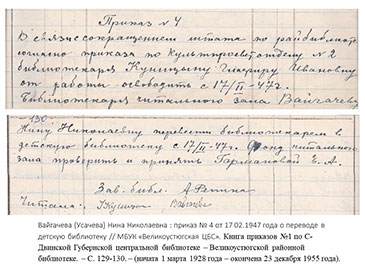 Приказ № 4
В связи с сокращением штата по райбиблиотеке
согласно приказа по Культпросветотделу № 2
библиотекаря Куницыну Глафиру Ивановну
от работы освободить с 17/II-47г.
Библиотекаря читального зала Вайгачеву
-130-
Нину Николаевну перевести библиотекарем в
детскую библиотеку с 17/II-47г. Фонд читального
зала проверить и принять Гармановой Е. А.
Зав. библ. А Репина
Читали.
Вайгачева (Усачева) Нина Николаевна : приказ № 4 от 17 02.1947 года о переводе в
детскую библиотеку // МБУК «Великоустюгская ЦБС». Книга приказов №1 по С-
Двинской Губернской центральной библиотеке – Великоустюгской районной
библиотеке. – С. 129-130. – (начата 1 марта 1928 года – окончена 23 декабря 1955 года).